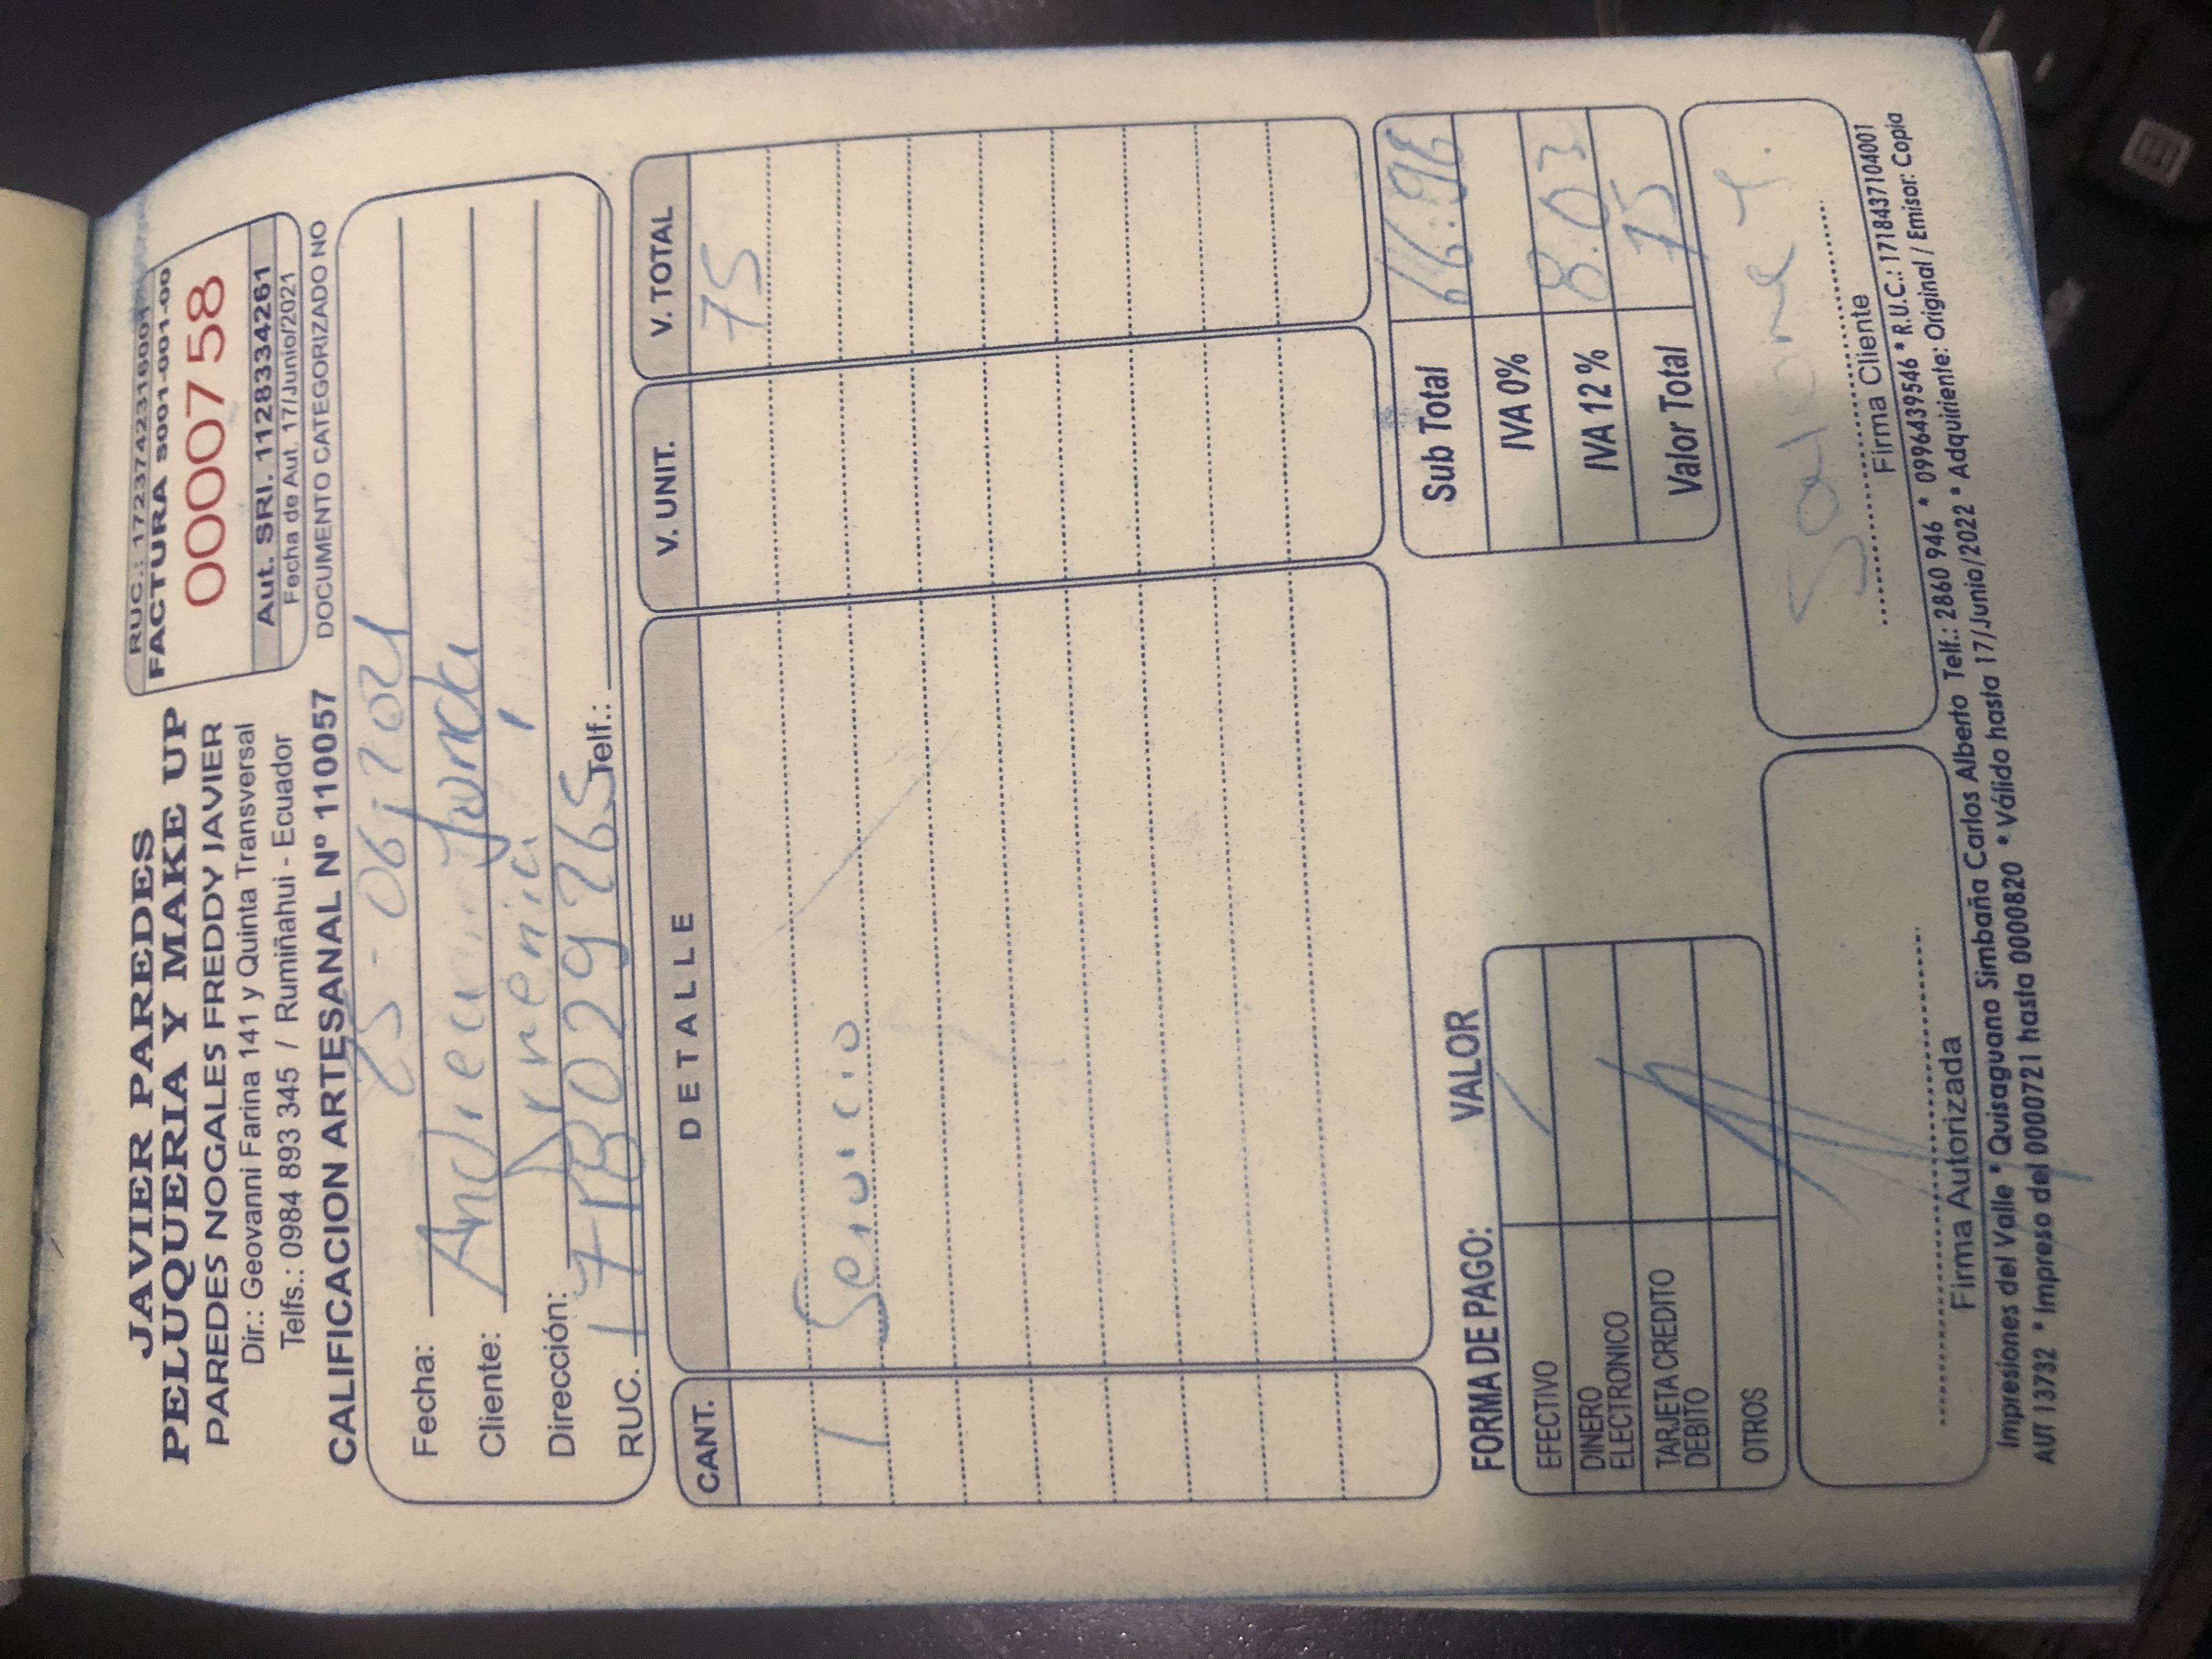 JAVIER PAREDES
PELUQUERIA Y MAKE UP
PAREDES NOGALES FREDDY JAVIER
Dir.: Geovanni Farina 141 y Quinta Transversal
Telfs.: 0984 893 345 / Rumiñahui - Ecuador
CALIFICACION ARTESANAL Nº 110057
RUC.: 1723742316001
FACTURA S001-001-00
0000758
Aut. SRI. 1128334261
Fecha de Aut. 17/Junio/2021
DOCUMENTO CATEGORIZADO NO
Fecha: 25-06-2021
Cliente: Andrea
Dirección: Armenia 1
RUC. 1718029265 Telf.:
CANT. DETALLE V. UNIT. V. TOTAL
75
1 Servicio
Sub Total 66.96
IVA 0%
IVA 12% 8.03
Valor Total 75
FORMA DE PAGO: VALOR
EFECTIVO /
DINERO
ELECTRONICO
TARJETA CREDITO
DEBITO
OTROS
Firma Autorizada
Firma Cliente
Impresiones del Valle * Quisaguano Simbaña Carlos Alberto Telf.: 2860 946 * 0996439546 * R.U.C.: 1718437104001
AUT 13732 * Impreso del 0000721 hasta 0000820 * Válido hasta 17/Junio/2022 * Adquiriente: Original / Emisor: Copia